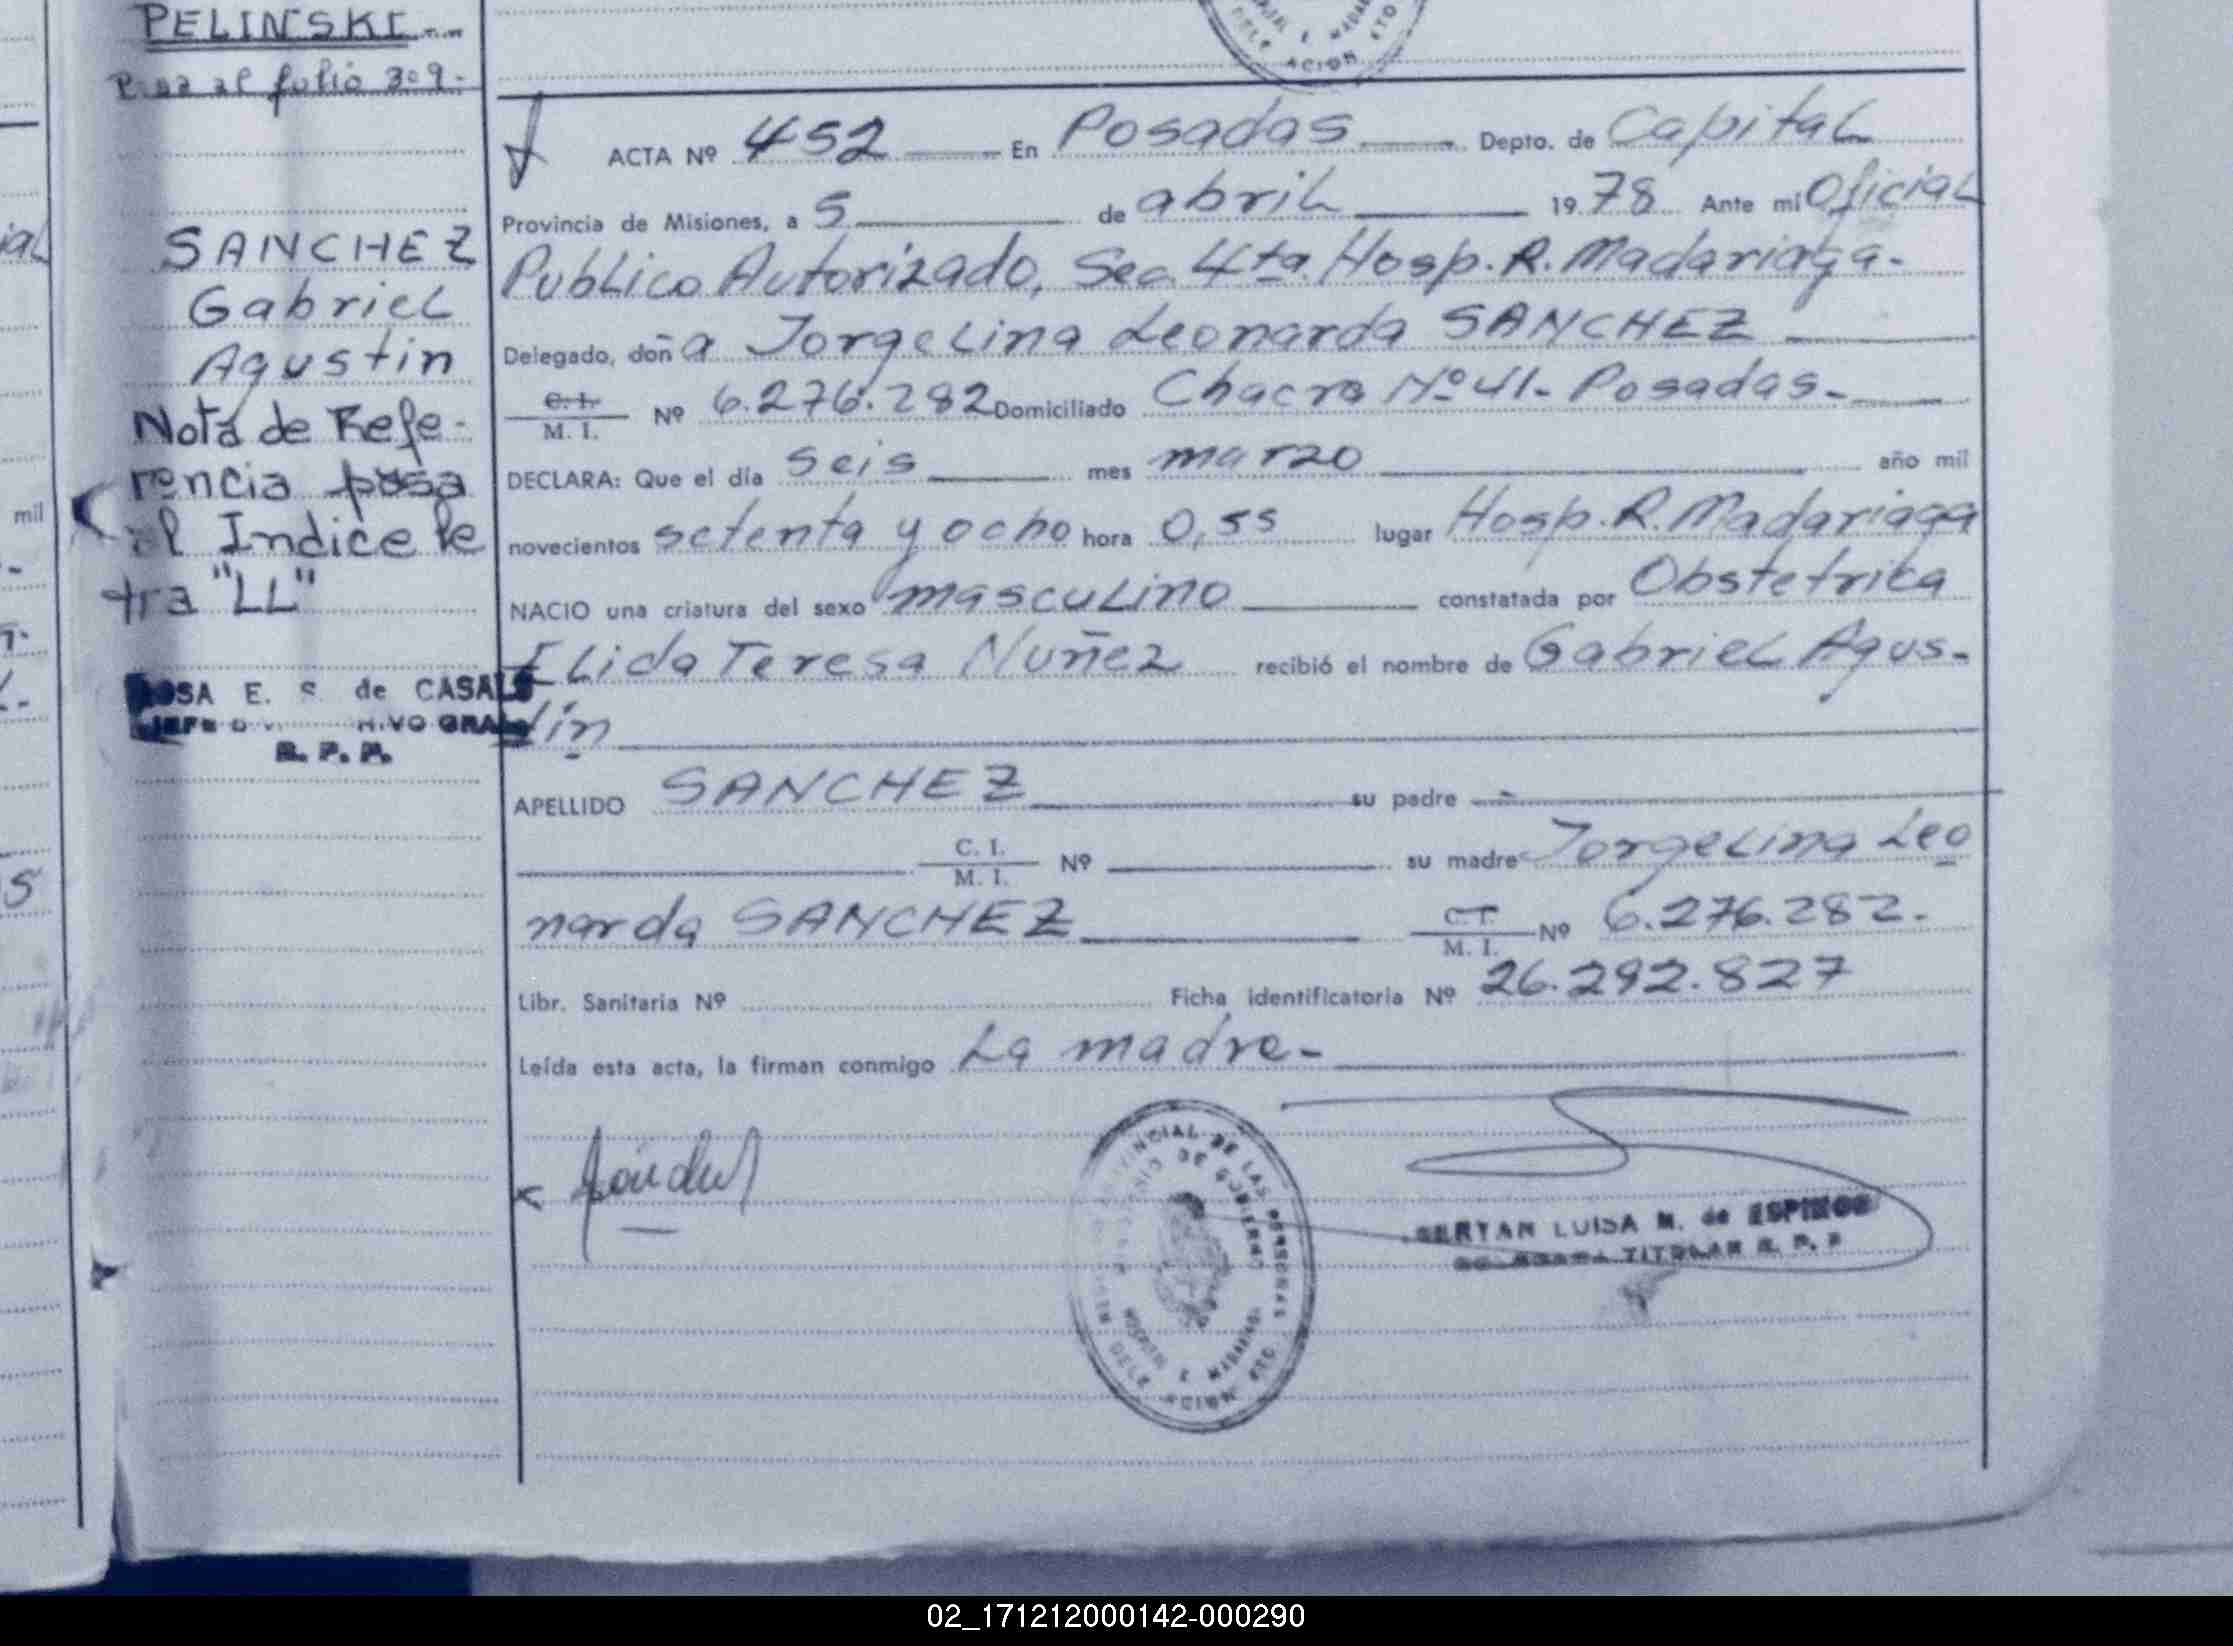 PELINSKI
Pasa al folio 309.-
ACION
ACTA Nº 452 En Posadas Depto. de Capital
Provincia de Misiones, a 5 de abril 1978 Ante mi Oficial
Publico Autorizado, Sec. 4ta. Hosp. R. Madariaga.-
Delegado, doña Jorgelina Leonarda SANCHEZ
C. I. / M. I. Nº 6.276.282 Domiciliado Chacra Nº 41- Posadas.-
DECLARA: Que el día seis mes marzo año mil
novecientos setenta y ocho hora 0,55 lugar Hosp. R. Madariaga
NACIO una criatura del sexo masculino constatada por Obstetrica
Elida Teresa Nuñez recibió el nombre de Gabriel Agus-
tin
APELLIDO SANCHEZ su padre -
C. I. / M. I. Nº su madre Jorgelina Leo
narda SANCHEZ C. I. / M. I. Nº 6.276.282.-
Libr. Sanitaria Nº Ficha identificatoria Nº 26.292.827
Leída esta acta, la firman conmigo La madre.-
SANCHEZ
Gabriel
Agustin
Nota de Refe-
rencia pasa
al Indice le
tra "LL"
ROSA E. S. de CASALS
R. P. P.
PROVINCIAL DE LAS PERSONAS
DE GOBIERNO
LUISA M. de ESPINOS
TITULAR R. P. P
mil
5
02_171212000142-000290